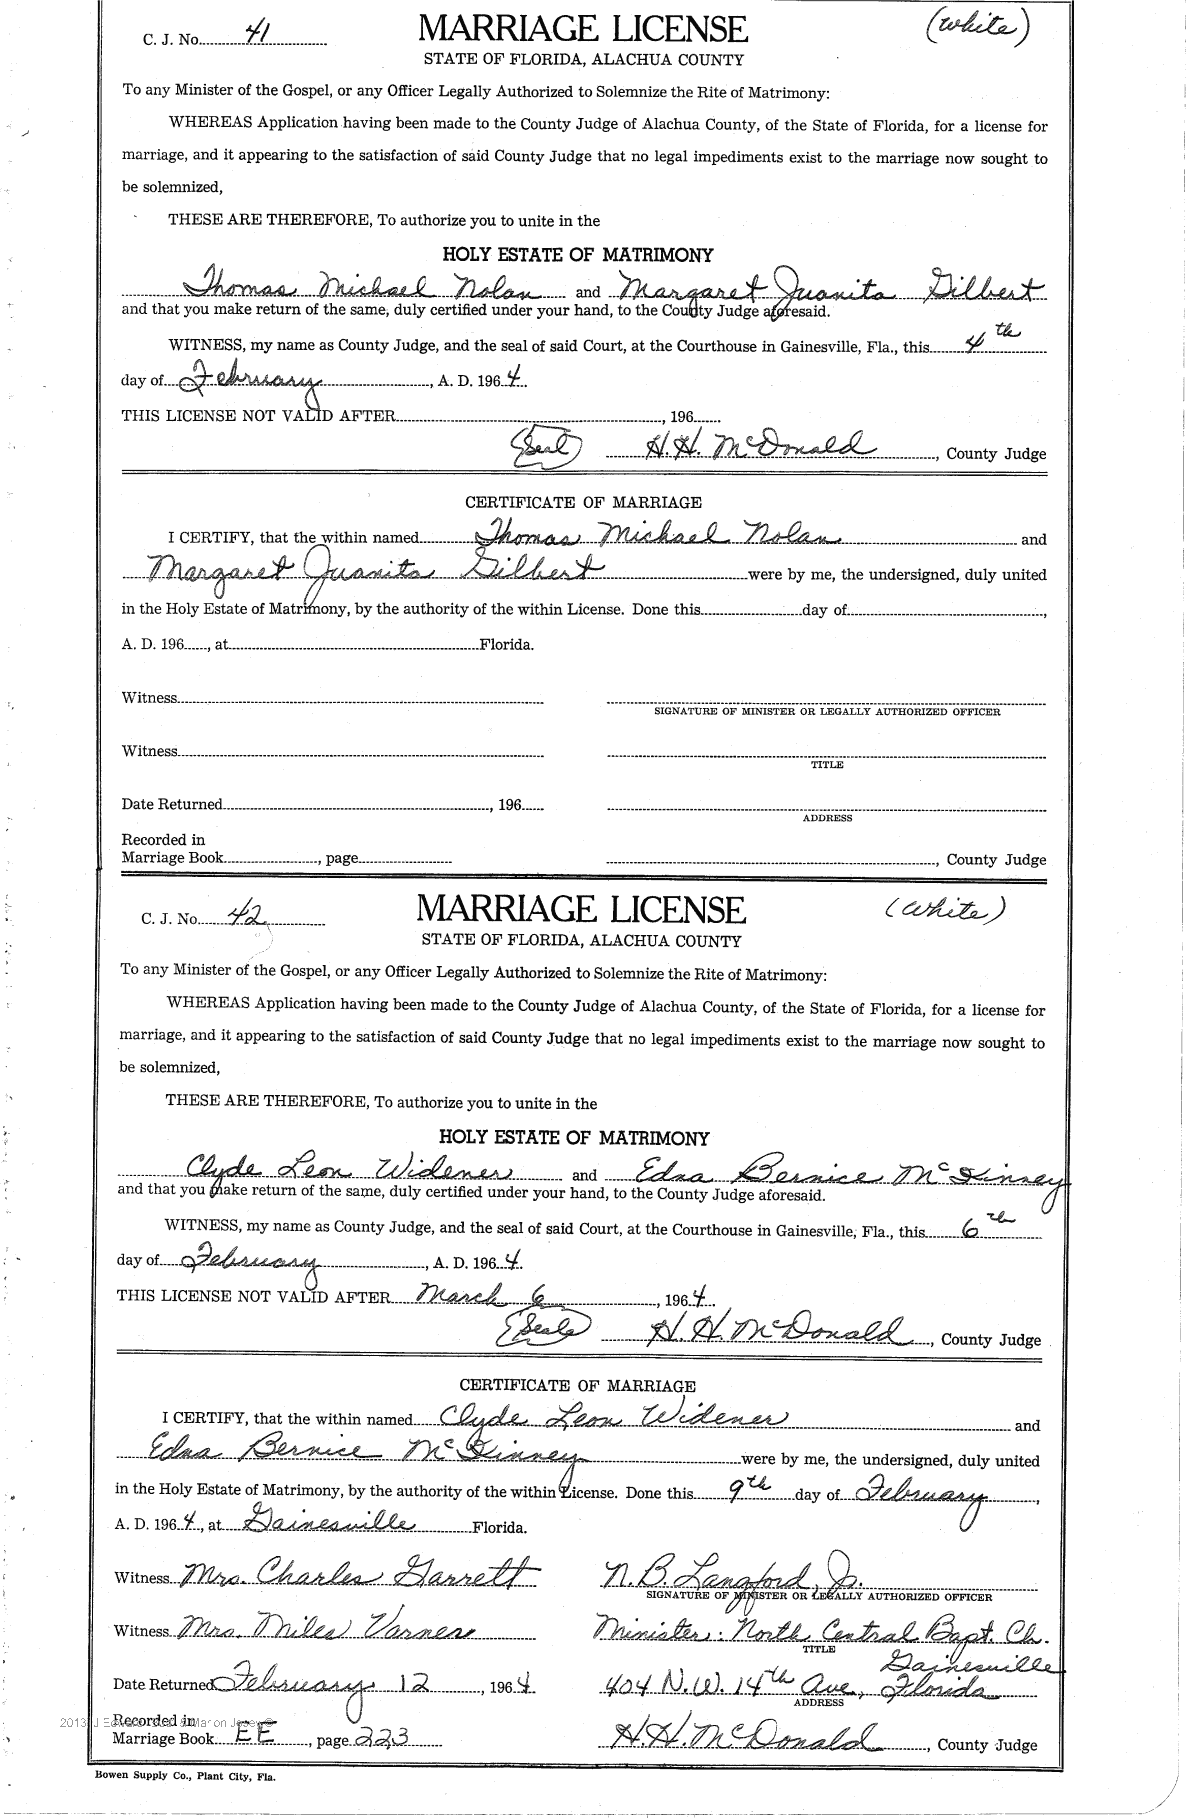 C. J. No. 41 MARRIAGE LICENSE (White)
STATE OF FLORIDA, ALACHUA COUNTY
To any Minister of the Gospel, or any Officer Legally Authorized to Solemnize the Rite of Matrimony:
WHEREAS Application having been made to the County Judge of Alachua County, of the State of Florida, for a license for
marriage, and it appearing to the satisfaction of said County Judge that no legal impediments exist to the marriage now sought to
be solemnized,
THESE ARE THEREFORE, To authorize you to unite in the
HOLY ESTATE OF MATRIMONY
Thomas Michael Nolan and Margaret Juanita Gilbert
and that you make return of the same, duly certified under your hand, to the County Judge aforesaid.
WITNESS, my name as County Judge, and the seal of said Court, at the Courthouse in Gainesville, Fla., this 4th
day of February, A. D. 1964.
THIS LICENSE NOT VALID AFTER, 196
(Seal) H. H. McDonald, County Judge
CERTIFICATE OF MARRIAGE
I CERTIFY, that the within named Thomas Michael Nolan and
Margaret Juanita Gilbert were by me, the undersigned, duly united
in the Holy Estate of Matrimony, by the authority of the within License. Done this day of,
A. D. 196, at Florida.
Witness
SIGNATURE OF MINISTER OR LEGALLY AUTHORIZED OFFICER
Witness
TITLE
Date Returned, 196
ADDRESS
Recorded in
Marriage Book, page, County Judge
C. J. No. 42 MARRIAGE LICENSE (White)
STATE OF FLORIDA, ALACHUA COUNTY
To any Minister of the Gospel, or any Officer Legally Authorized to Solemnize the Rite of Matrimony:
WHEREAS Application having been made to the County Judge of Alachua County, of the State of Florida, for a license for
marriage, and it appearing to the satisfaction of said County Judge that no legal impediments exist to the marriage now sought to
be solemnized,
THESE ARE THEREFORE, To authorize you to unite in the
HOLY ESTATE OF MATRIMONY
Clyde Leon Widener and Edna Bernice McKinney
and that you make return of the same, duly certified under your hand, to the County Judge aforesaid.
WITNESS, my name as County Judge, and the seal of said Court, at the Courthouse in Gainesville, Fla., this 6th
day of February, A. D. 1964.
THIS LICENSE NOT VALID AFTER March 6, 1964.
(Seal) H. H. McDonald, County Judge
CERTIFICATE OF MARRIAGE
I CERTIFY, that the within named Clyde Leon Widener and
Edna Bernice McKinney were by me, the undersigned, duly united
in the Holy Estate of Matrimony, by the authority of the within License. Done this 9th day of February,
A. D. 1964, at Gainesville Florida.
Witness Mrs. Charles Garrett N. B. Langford, Jr.
SIGNATURE OF MINISTER OR LEGALLY AUTHORIZED OFFICER
Witness Mrs. Miles Varnes Minister: North Central Bapt. Ch.
TITLE
Gainesville
Date Returned February 12, 1964 404 N.W. 14th Ave., Florida
ADDRESS
Recorded in
Marriage Book EE, page 223 H. H. McDonald, County Judge
Bowen Supply Co., Plant City, Fla.